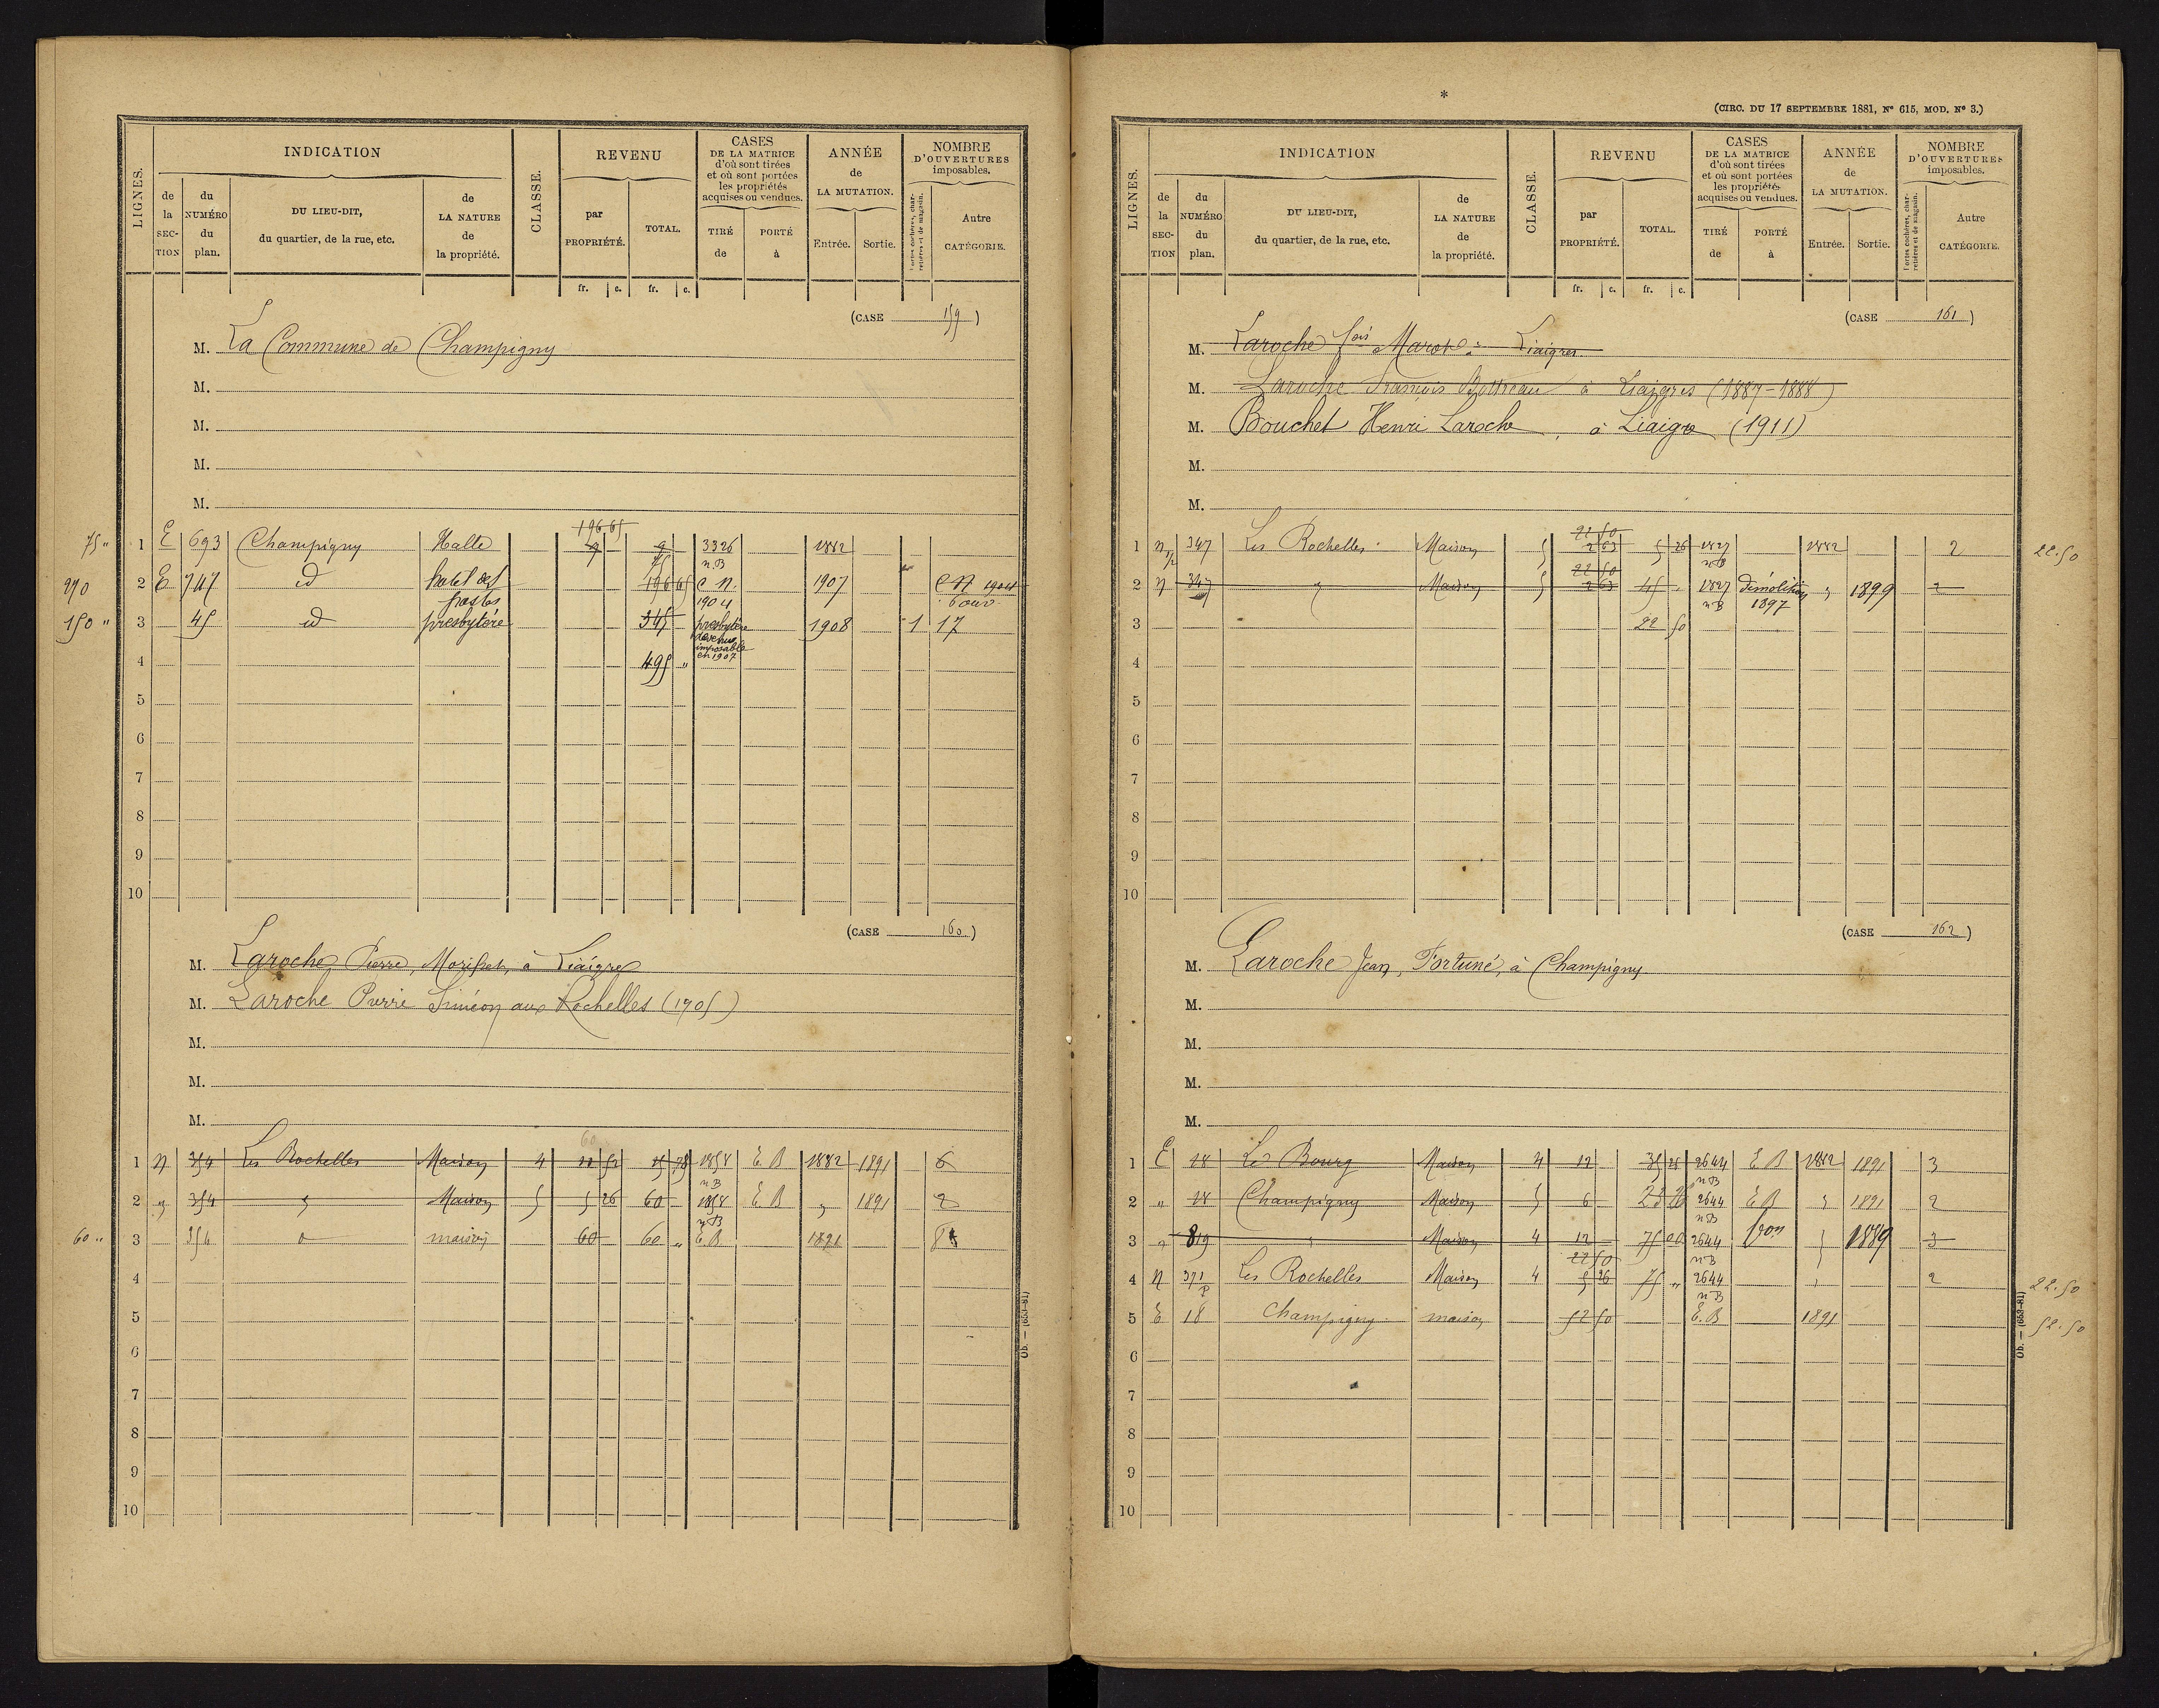 LIGNES.
INDICATION
de la SECTION
du NUMÉRO du plan.
DU LIEU-DIT, du quartier, de la rue, etc.
de LA NATURE de la propriété.
CLASSE.
REVENU
par PROPRIÉTÉ.
TOTAL.
fr. c. fr. c.
CASES DE LA MATRICE d'où sont tirées et où sont portées les propriétés acquises ou vendues.
TIRÉ de
PORTÉ à
ANNÉE de LA MUTATION.
Entrée. Sortie.
NOMBRE D'OUVERTURES imposables.
Portes cochères, charretières et de magasin.
Autre CATÉGORIE.
(CASE 159)
M. La Commune de Champigny
M.
M.
M.
M.
196 65
75 " 1 E 693 Champigny Halle 9 9 3326 1882
75 n.B
270 2 E 747 id hotel des postes 196 65 C N. 1904 1907 C N 1904 6 ouv
150 " 3 45 id presbytère 345 presbytère devenu imposable en 1907 1908 1 17
4 495 "
5
6
7
8
9
10
(CASE 160)
M. Laroche Pierre, à Liaigre
M. Laroche Pierre Siméon aux Rochelles (1905)
M.
M.
M.
60
1 N 354 Les Rochelles Maison 4 52 78 1858 E B 1882 1891 6
n B
2 " 354 " Maison 5 5 26 60 1858 E B " 1891 2
n B
60 " 3 354 " maison 60 60 " E.B 1891 8
4
5
6
7
8
9
10
Ob. — (653-81)
*
(CIRC. DU 17 SEPTEMBRE 1881, N° 615, MOD. N° 3.)
LIGNES.
INDICATION
de la SECTION
du NUMÉRO du plan.
DU LIEU-DIT, du quartier, de la rue, etc.
de LA NATURE de la propriété.
CLASSE.
REVENU
par PROPRIÉTÉ.
TOTAL.
fr. c. fr. c.
CASES DE LA MATRICE d'où sont tirées et où sont portées les propriétés acquises ou vendues.
TIRÉ de
PORTÉ à
ANNÉE de LA MUTATION.
Entrée. Sortie.
NOMBRE D'OUVERTURES imposables.
Portes cochères, charretières et de magasin.
Autre CATÉGORIE.
(CASE 161)
M. Laroche fois Marot à Liaigres
M. Laroche François Bottreau à Liaigres (1887-1888)
M. Bouchet Henri Laroche, à Liaigre (1911)
M.
M.
22 50
1 N 347 p Les Rochelles Maison 5 2 63 5 26 1827 1882 2 22.50
22 50 n B
2 N 347 " Maison 5 2 63 45 " 1827 démolition 1897 " 1899 2
n B
3 22 50
4
5
6
7
8
9
10
(CASE 162)
M. Laroche Jean, Fortuné, à Champigny
M.
M.
M.
M.
1 E 18 Le Bourg Maison 4 12 35 26 2644 E B 1882 1891 3
n B
2 " 18 Champigny Maison 5 6 23 26 2644 E B " 1891 2
n B
3 " 819 " Maison 4 12 75 2644 " 1889 3
22 50 n B
4 N 371 p Les Rochelles Maison 4 5 26 75 " 2644 " 2 22.50
n B
5 E 18 Champigny maison 52 50 E.B 1891 52.50
6
7
8
9
10
Ob. — (653-81)